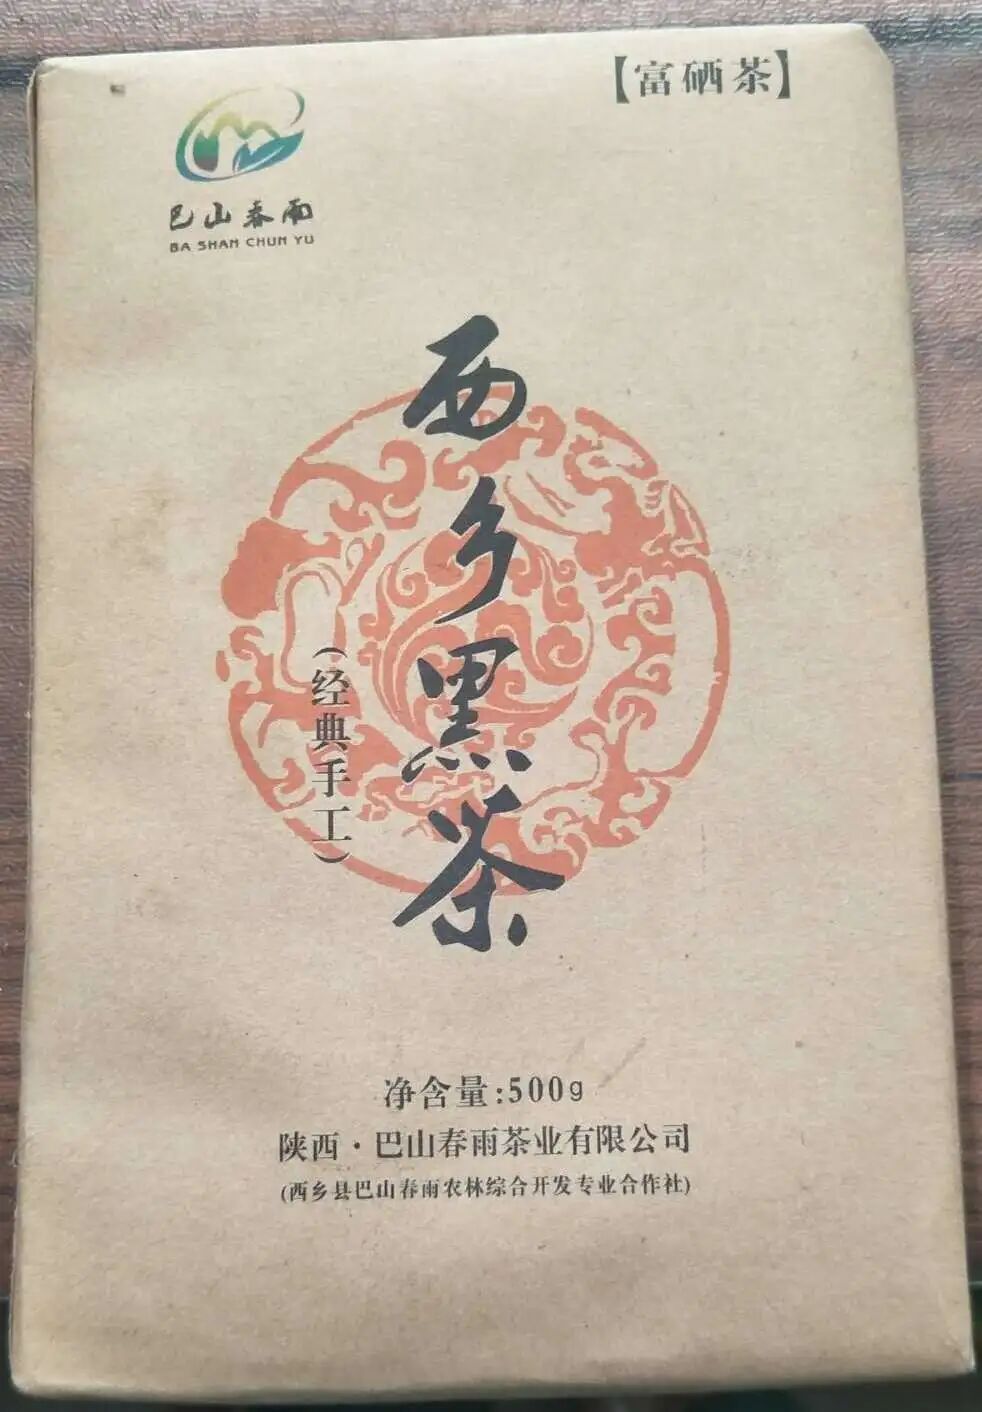 【富硒茶】
巴山春雨
BA SHAN CHUN YU
西乡黑茶
(经典手工)
净含量:500g
陕西·巴山春雨茶业有限公司
(西乡县巴山春雨农林综合开发专业合作社)